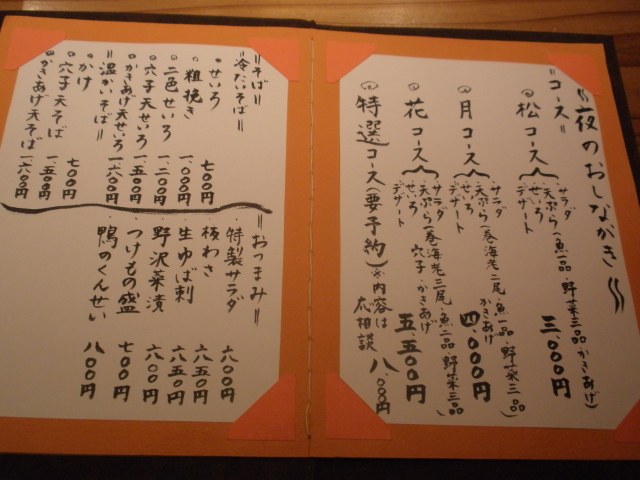 夜のおしながき
=コース=
松コース
サラダ
天ぷら(魚一品・野菜三品・かきあげ)
せいろ
デザート
三、〇〇〇円
月コース
サラダ
天ぷら(巻海老二尾・魚一品・野菜三品)
かきあげ
せいろ
デザート
四、〇〇〇円
花コース
サラダ
天ぷら(巻海老二尾・魚二品・野菜三品
穴子・かきあげ
せいろ
デザート
五、五〇〇円
特選コース(要予約)※内容は
応相談
八、〇〇〇円
=そば=
=冷たいそば=
せいろ 七〇〇円
粗挽き 一、〇〇〇円
二色せいろ 一、二〇〇円
穴子天せいろ 一、五〇〇円
かきあげ天せいろ 一、六〇〇円
=温かいそば=
かけ 七〇〇円
穴子天そば 一、五〇〇円
かきあげ天そば 一、六〇〇円
=おつまみ=
特製サラダ 六〇〇円
板わさ 六五〇円
生ゆば刺 六五〇円
野沢菜漬 六〇〇円
つけもの盛 七〇〇円
鴨のくんせい 八〇〇円